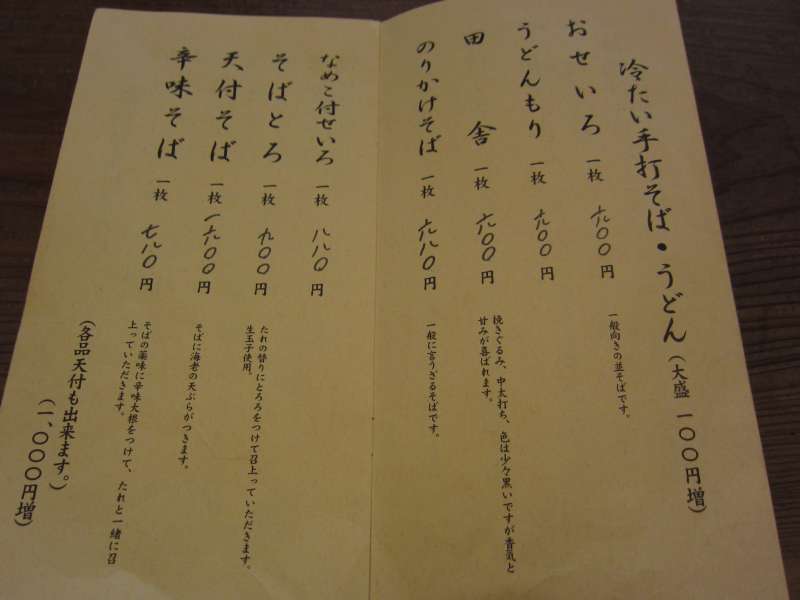 冷たい手打そば・うどん（大盛 一〇〇円増）
おせいろ 一枚 六〇〇円
一般向きの並そばです。
うどんもり 一枚 六〇〇円
田舎 一枚 六〇〇円
挽きぐるみ、中太打ち、色は少々黒いですが香気と
甘みが喜ばれます。
のりかけそば 一枚 六八〇円
一般に言うざるそばです。
なめこ付せいろ 一枚 八八〇円
そばとろ 一枚 九〇〇円
たれの替りにとろろをつけて召上っていただきます。
生玉子使用。
天付そば 一枚 一六〇〇円
そばに海老の天ぷらがつきます。
辛味そば 一枚 七八〇円
そばの薬味に辛味大根をつけて、たれと一緒に召
上っていただきます。
（各品天付も出来ます。）
（一、〇〇〇円増）